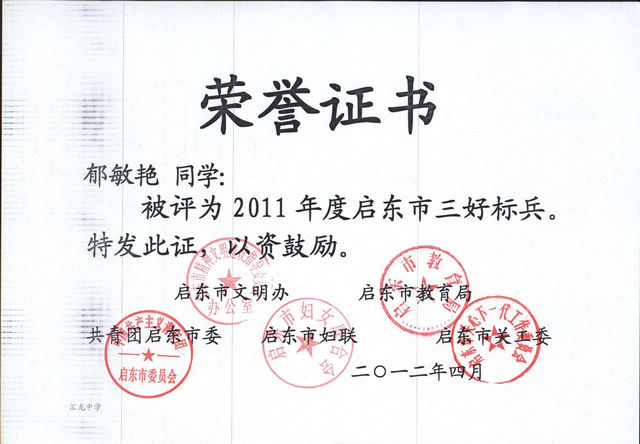 荣誉证书
郁敏艳 同学:
被评为 2011 年度启东市三好标兵。
特发此证，以资鼓励。
启东市文明办 启东市教育局
共青团启东市委 启东市妇联 启东市关工委
二〇一二年四月
汇龙中学
办公室
启东市教育局
启东市委员会
启东市妇女联合会